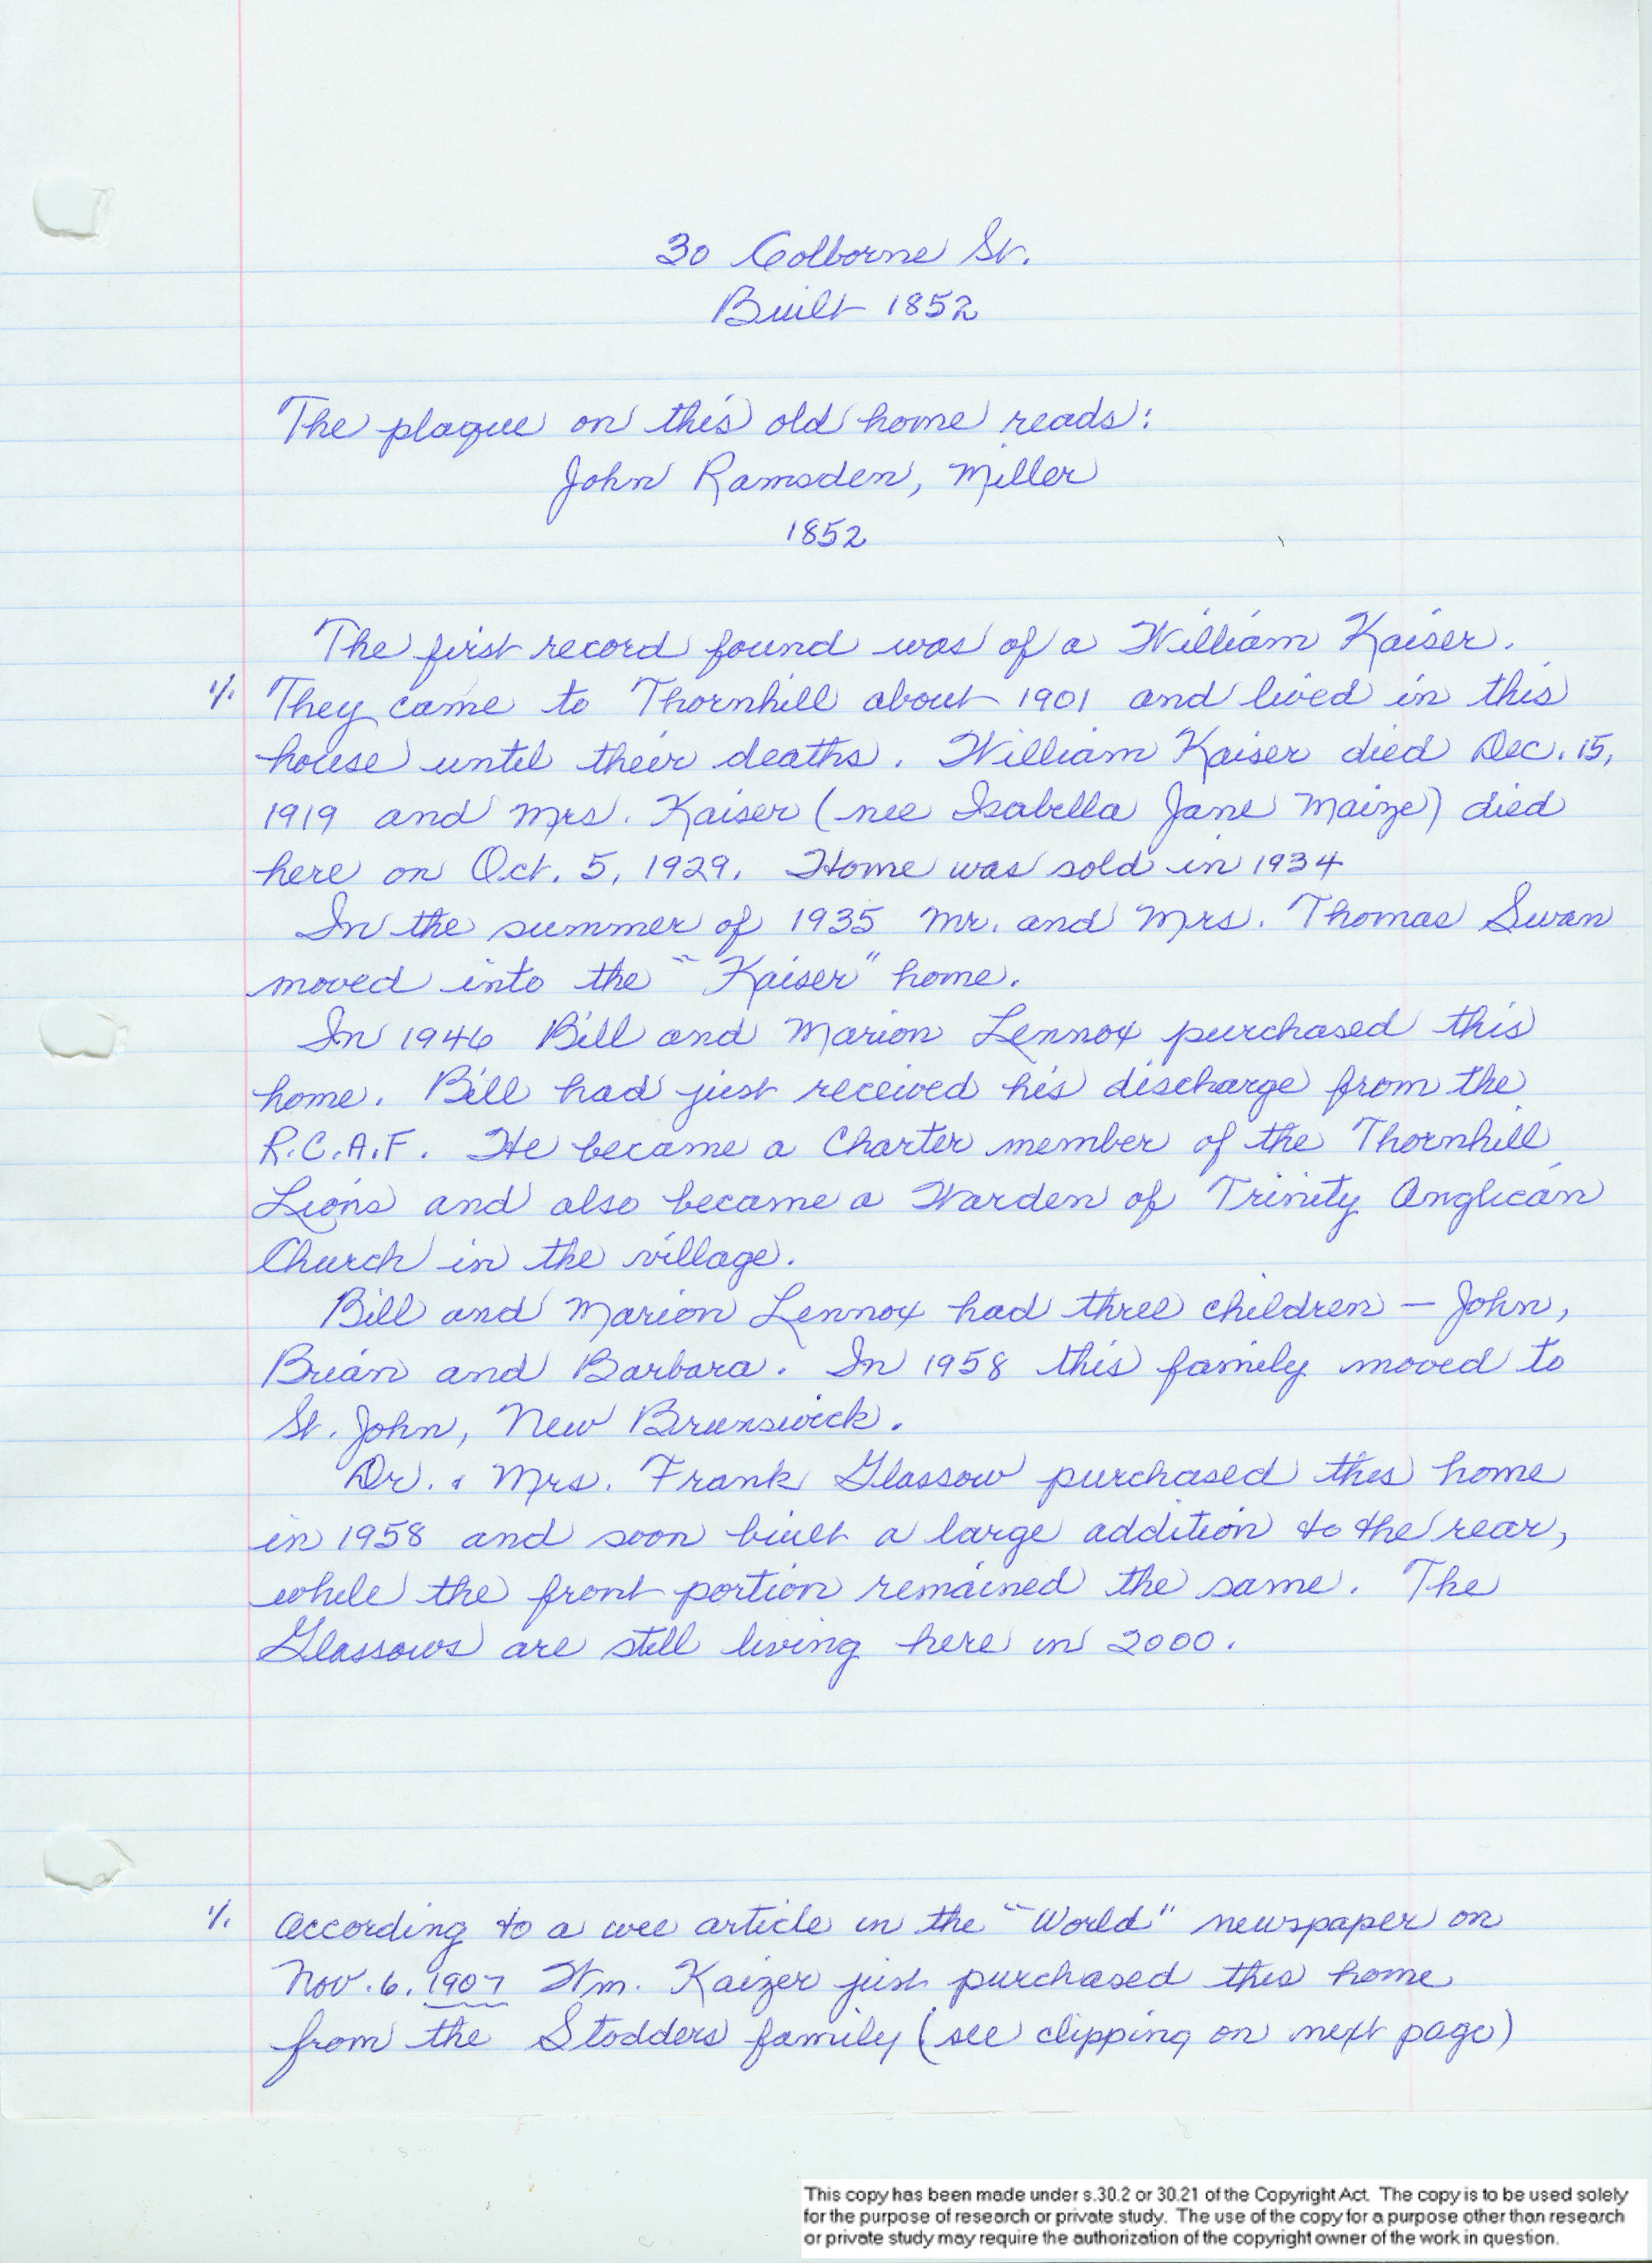 30 Colborne St.
Built 1852
The plaque on this old home reads:
John Ramsden, Miller
1852
The first record found was of a William Kaiser.
1/. They came to Thornhill about 1901 and lived in this
house until their deaths. William Kaiser died Dec. 15,
1919 and Mrs. Kaiser (nee Isabella Jane Maize) died
here on Oct. 5, 1929. Home was sold in 1934
In the summer of 1935 Mr. and Mrs. Thomas Swan
moved into the "Kaiser" home.
In 1946 Bill and Marion Lennox purchased this
home. Bill had just received his discharge from the
R.C.A.F. He became a Charter member of the Thornhill
Lions and also became a Warden of Trinity Anglican
Church in the village.
Bill and Marion Lennox had three children – John,
Brian and Barbara. In 1958 this family moved to
St. John, New Brunswick.
Dr. & Mrs. Frank Glassow purchased this home
in 1958 and soon built a large addition to the rear,
while the front portion remained the same. The
Glassows are still living here in 2000.
1/. According to a wee article in the "World" newspaper on
Nov. 6, 1907 Wm. Kaizer just purchased this home
from the Stodders family (see clipping on next page)
This copy has been made under s.30.2 or 30.21 of the Copyright Act. The copy is to be used solely
for the purpose of research or private study. The use of the copy for a purpose other than research
or private study may require the authorization of the copyright owner of the work in question.